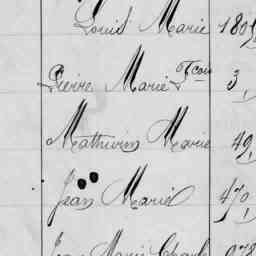 Louis Marie 180
Pierre Marie Fcois 3,
Mathurin Marie 49,
Jean Marie 470,
Jean Marie Charles 978